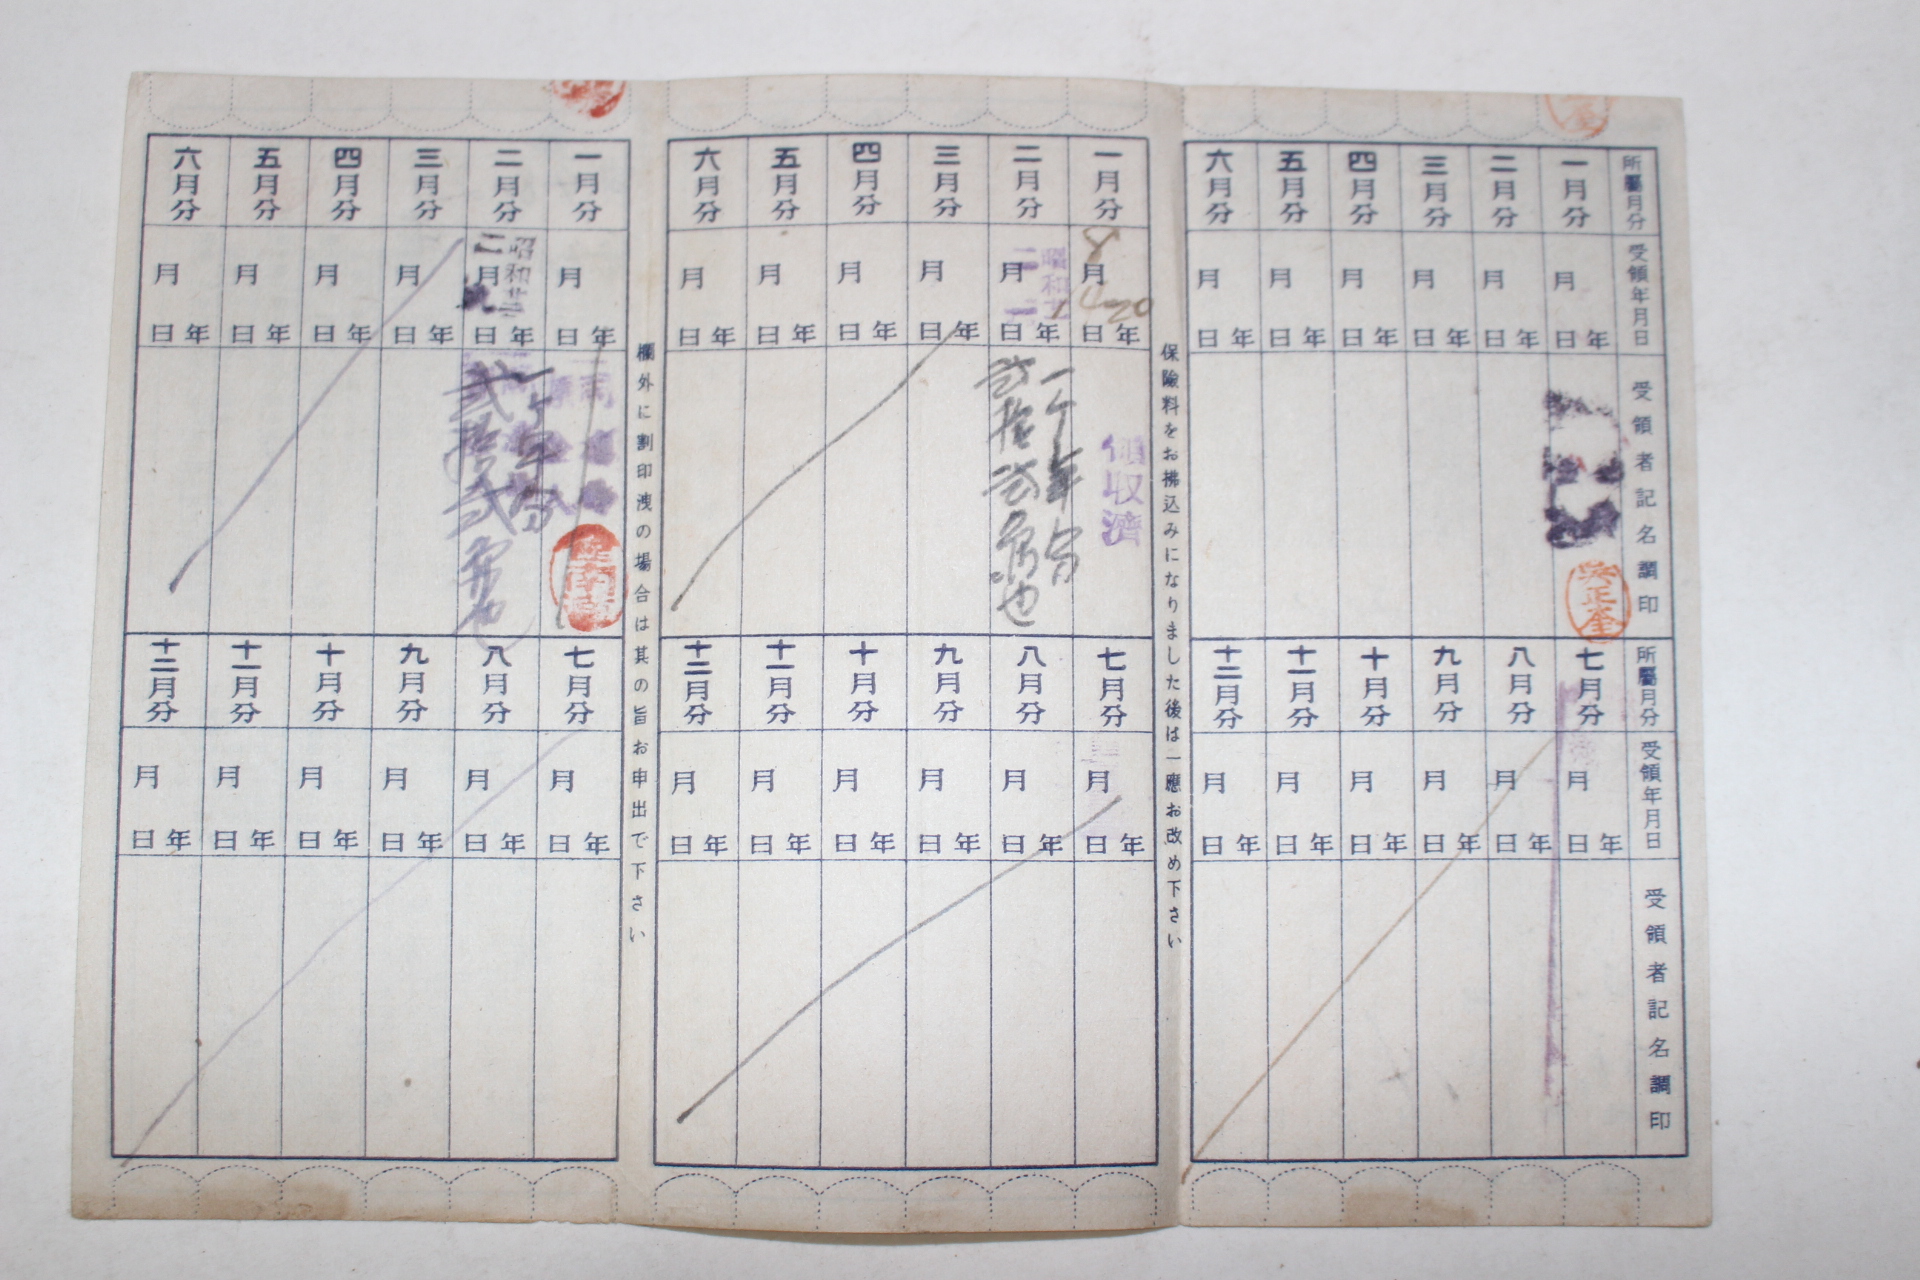 所屬月分
一月分
二月分
三月分
四月分
五月分
六月分
受領年月日
年月日
年月日
年月日
年月日
年月日
年月日
受領者記名調印
安正奎
所屬月分
七月分
八月分
九月分
十月分
十一月分
十二月分
受領年月日
年月日
年月日
年月日
年月日
年月日
年月日
受領者記名調印
保險料をお拂込みになりました後は一應お改め下さい
一月分
二月分
三月分
四月分
五月分
六月分
年月日
年月日
昭和
年月日
年月日
年月日
年月日
領収濟
一ケ年分
弐拾弐円也
七月分
八月分
九月分
十月分
十一月分
十二月分
年月日
年月日
年月日
年月日
年月日
年月日
欄外に割印洩の場合は其の旨お申出で下さい
一月分
二月分
三月分
四月分
五月分
六月分
年月日
昭和
年月日
年月日
年月日
年月日
年月日
一ケ年分
弐拾弐円也
七月分
八月分
九月分
十月分
十一月分
十二月分
年月日
年月日
年月日
年月日
年月日
年月日